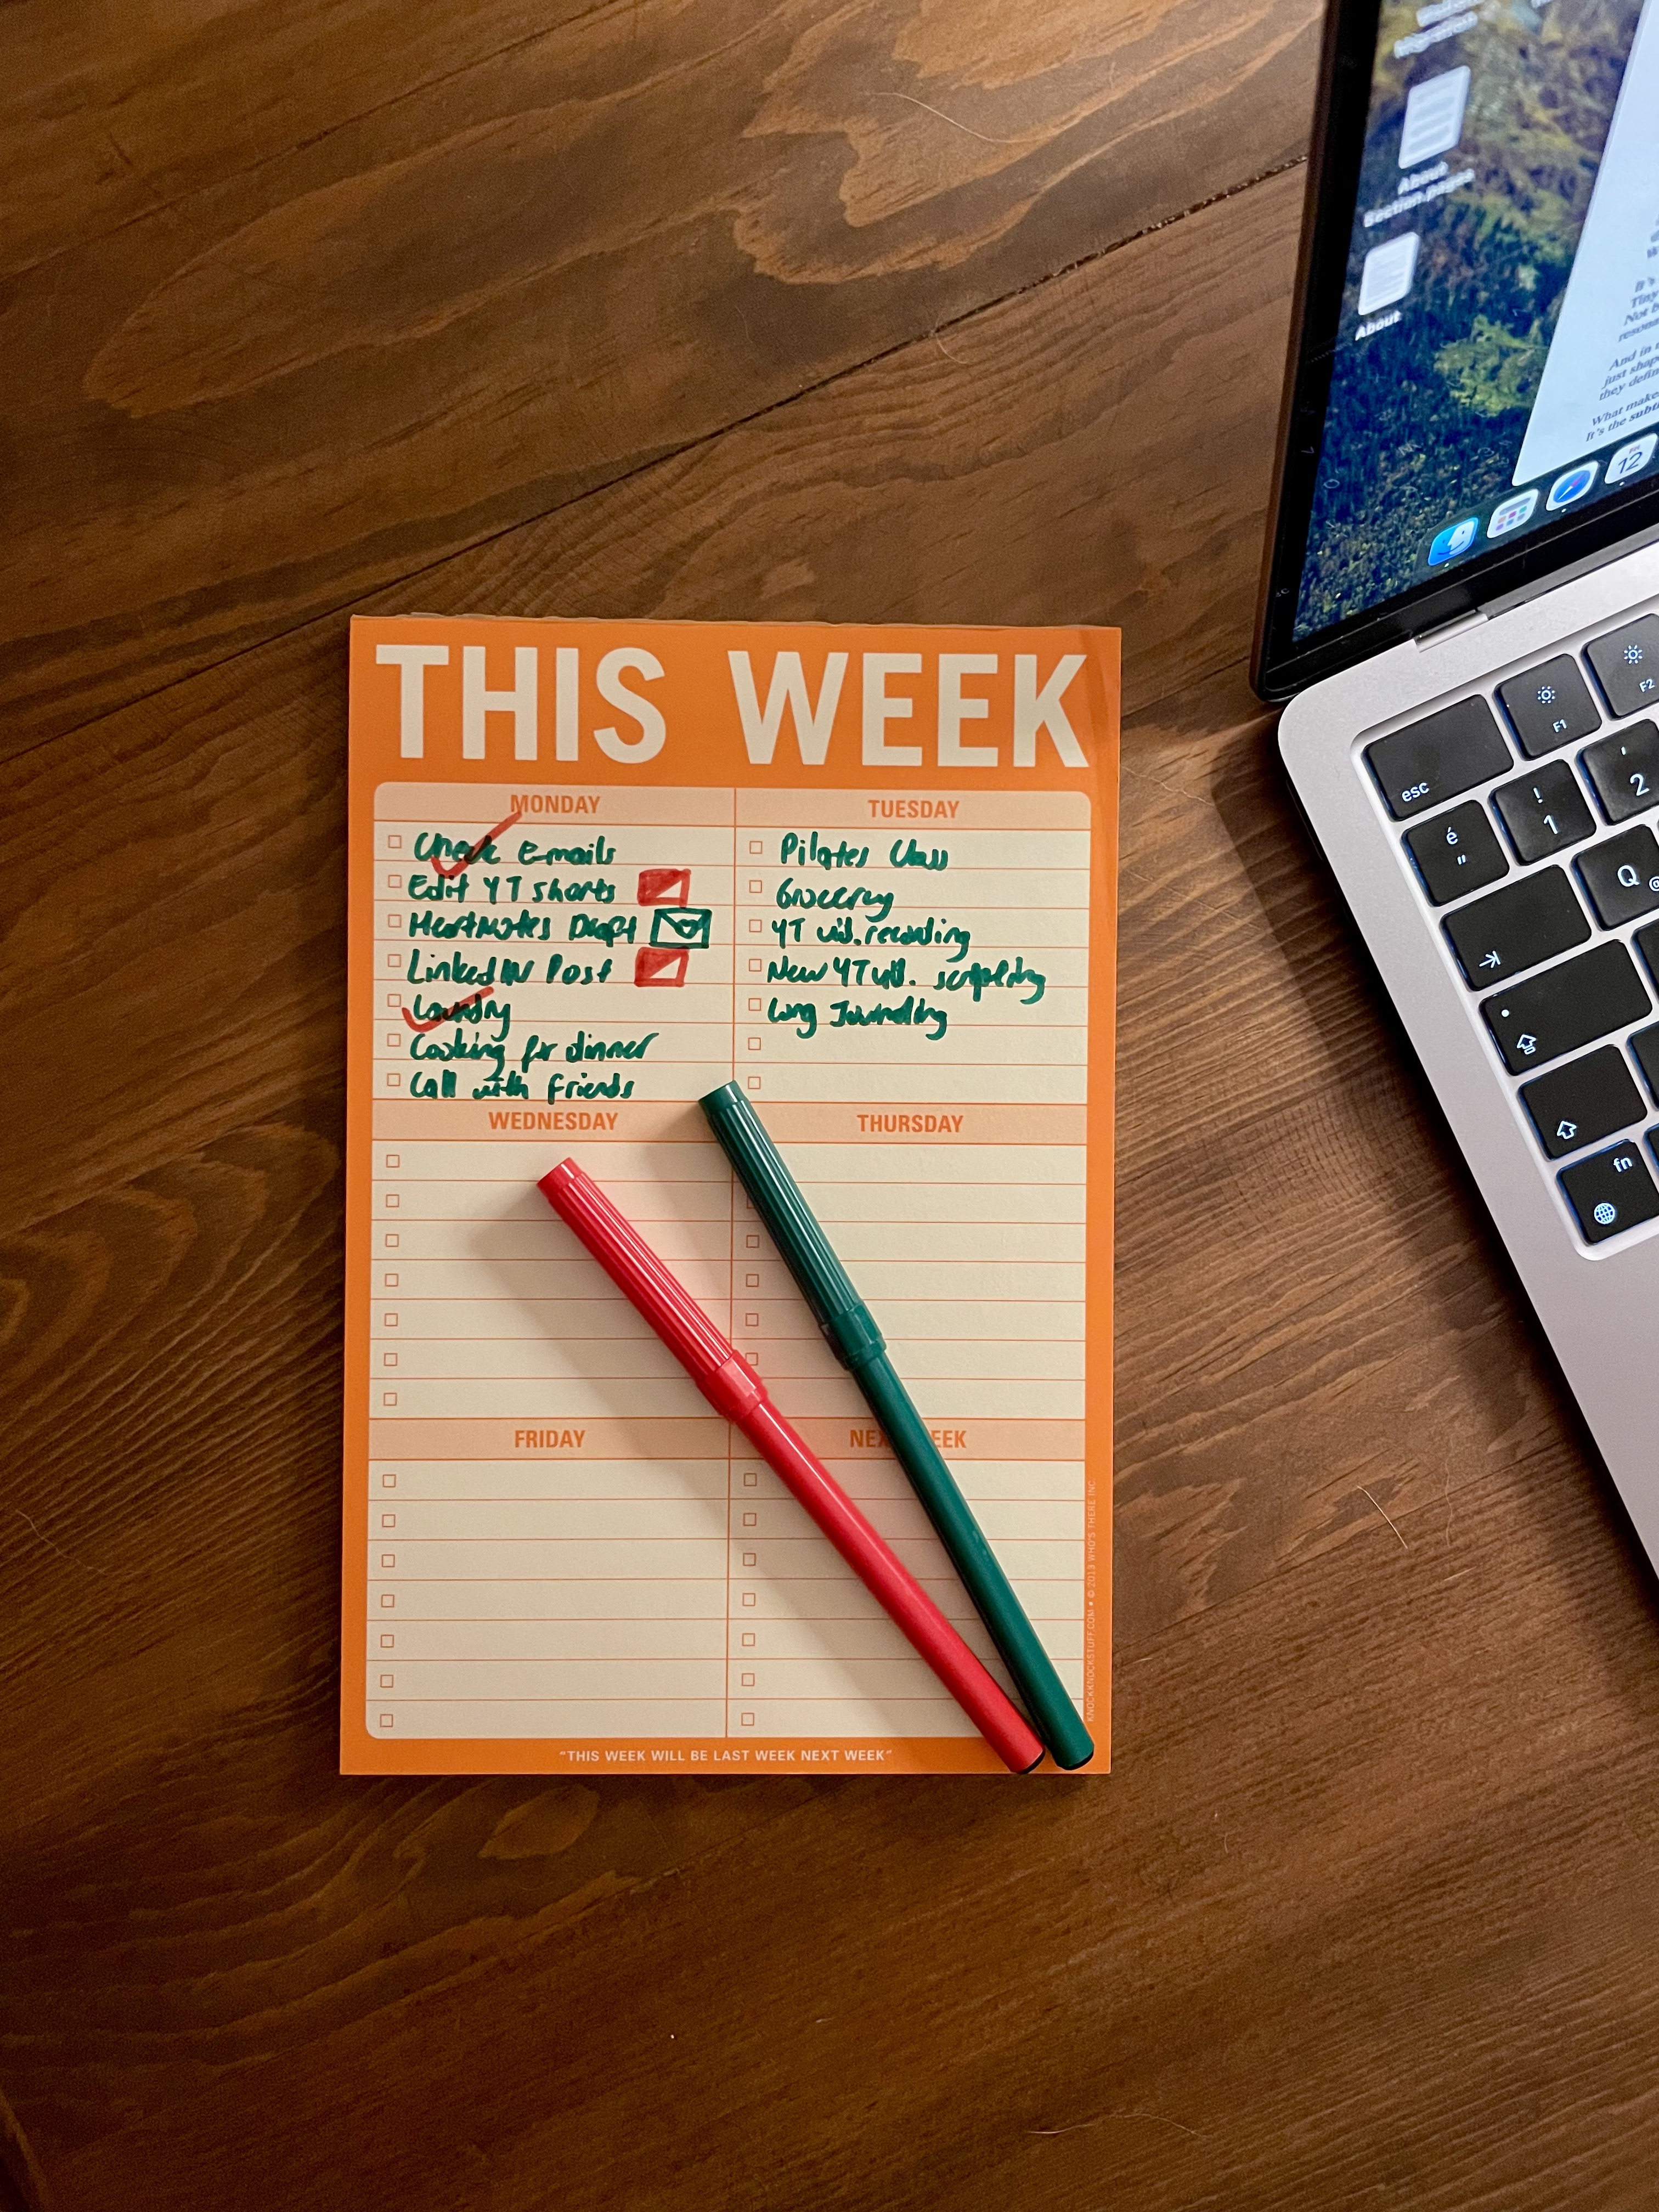 THIS WEEK
MONDAY
Check Emails
Edit YT shorts
HeartNotes Draft
LinkedIN Post
Laundry
Cooking for dinner
Call with friends
TUESDAY
Pilates Class
Grocerry
YT vid. recording
New YT vid. scripting
Long Journaling
WEDNESDAY
THURSDAY
FRIDAY
"THIS WEEK WILL BE LAST WEEK NEXT WEEK"
KNOCKKNOCKSTUFF.COM • © 2013 WHO'S THERE INC.
About
Section.pages
About
It's
Tiny
Not
And in
just
they
What
It's the
12
esc
F1
F2
é
"
!
1
'
2
Q
fn